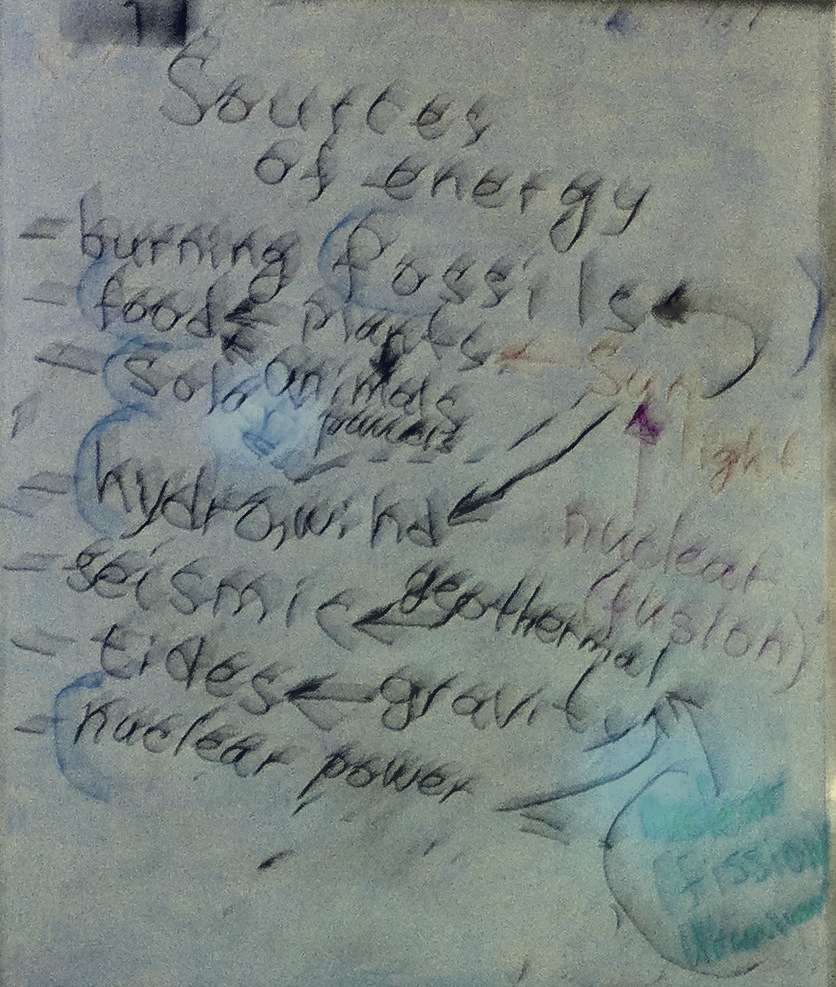 Sources
of energy
- burning fossils
- food ← plants ← Sun
- Solar animals
light
power
- hydro, wind
nuclear
(fusion)
- seismic ← geothermal
- tides ← gravity
- nuclear power
nuclear
fission
Uranium